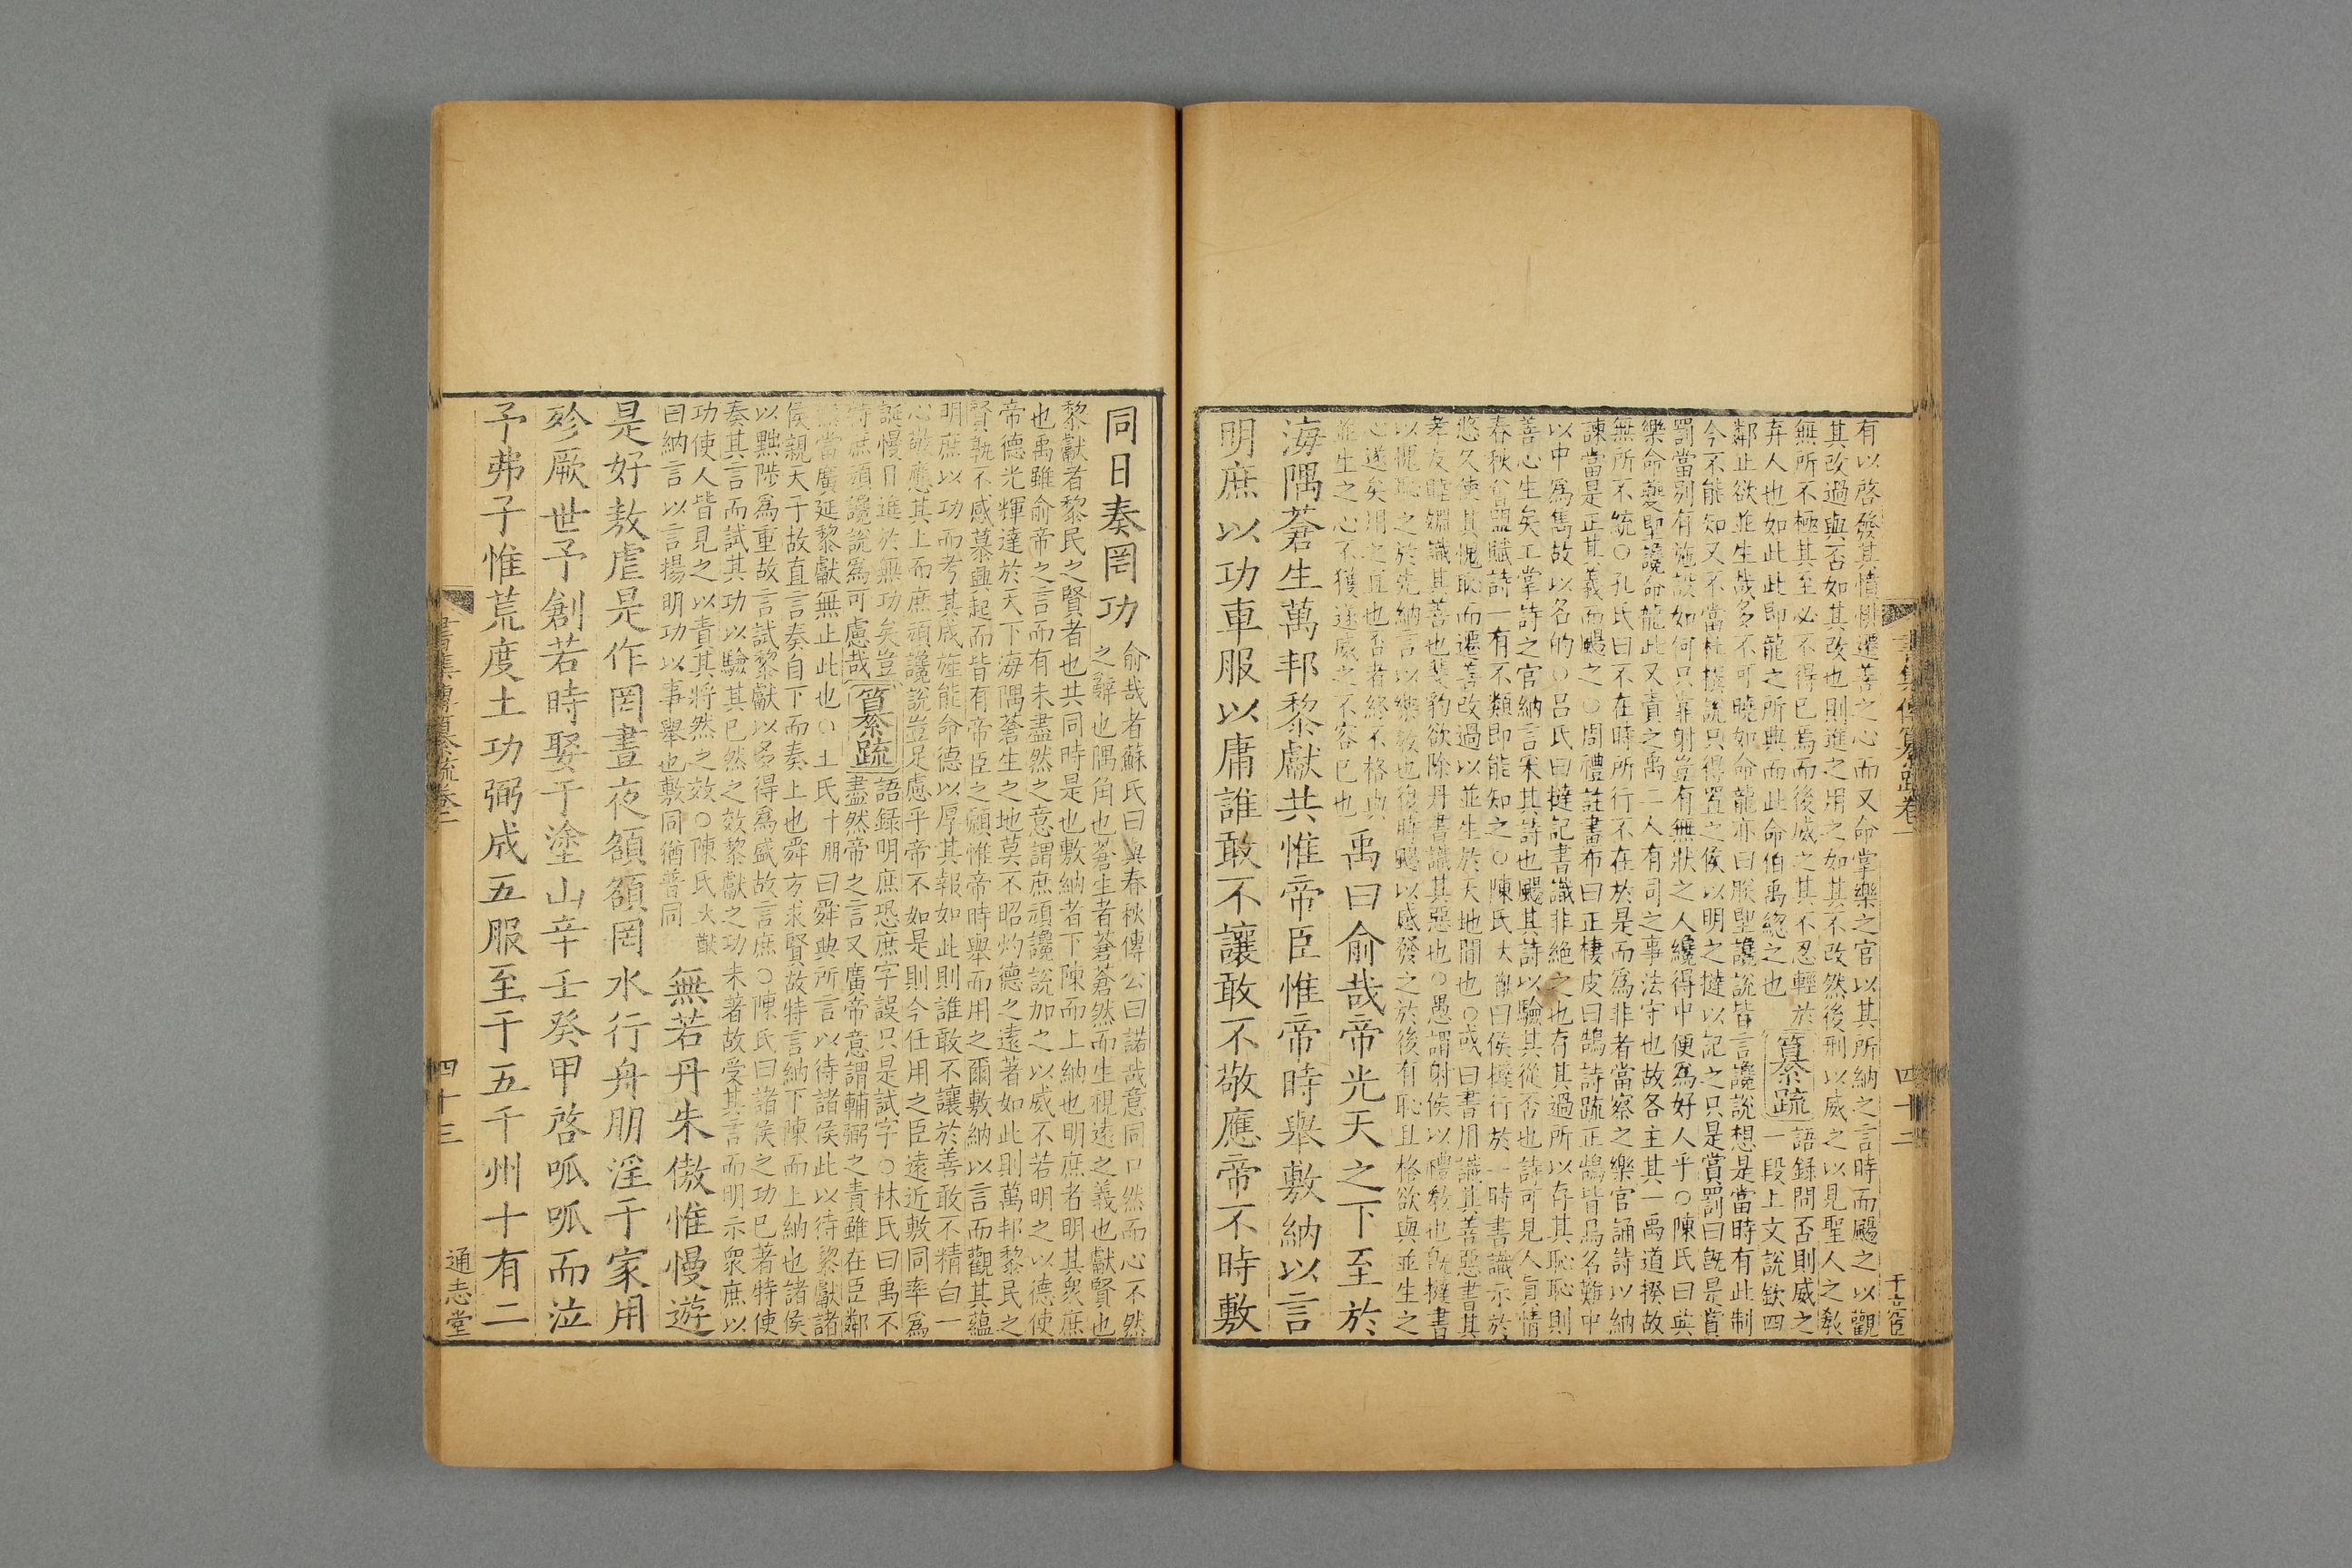 書集傳纂疏卷一 四十二
有以啓發其憤悱遷善之心而又命掌樂之官以其所納之言時而颺之以觀
其改過與否如其改也則進之用之如其不改然後刑以威之以見聖人之敎
無所不極其至必不得已焉而後威之其不忍輕於
弃人也如此此即龍之所典而此命伯禹緫之也
纂疏
語録問否則威之
一段上文說欽四
鄰止欲並生哉多不可曉如命龍亦曰朕堲讒說皆言讒說想是當時有此制
今不能知又不當杜撰說只得置之侯以明之撻以記之只是賞罰曰旣是賞
罰當别有施設如何只靠射豈有無狀之人纔得中便爲好人乎○陳氏曰典
樂命夔堲讒命龍此又責之禹二人有司之事法守也故各主其一禹道揆故
無所不統○孔氏曰不在時所行不在於是而爲非者當察之樂官誦詩以納
諫當是正其義而颺之○周禮註畫布曰正棲皮曰鵠詩疏正鵠皆鳥名難中
以中爲雋故以名的○吕氏曰撻記書識非絶之也存其過所以存其恥恥則
善心生矣工掌詩之官納言采其詩也颺其詩以驗其從否也詩可見人眞情
春秋會盟賦詩一有不類即能知之○陳氏大猷曰侯撻行於一時書識示於
悠久使其愧恥而遷善改過以並生於天地間也○或曰書用識其善惡書其
孝友睦婣識其善也斐豹欲除丹書識其惡也○愚謂射侯以禮敎也旣撻書
以愧恥之於先納言以樂敎也復時颺以感發之於後有恥且格欲與並生之
心遂矣用之宜也否者終不格典
並生之心不獲遂威之不容已也
禹曰俞哉帝光天之下至於
海隅蒼生萬邦黎獻共惟帝臣惟帝時舉敷納以言
明庶以功車服以庸誰敢不讓敢不敬應帝不時敷
同日奏罔功
俞哉者蘇氏曰與春秋傳公曰諾哉意同口然而心不然
之辭也隅角也蒼生者蒼蒼然而生視遠之義也獻賢也
黎獻者黎民之賢者也共同時是也敷納者下陳而上納也明庶者明其衆庶
也禹雖俞帝之言而有未盡然之意謂庶頑讒說加之以威不若明之以德使
帝德光輝達於天下海隅蒼生之地莫不昭灼德之遠著如此則萬邦黎民之
賢孰不感慕興起而皆有帝臣之願惟帝時舉而用之爾敷納以言而觀其蘊
明庶以功而考其成旌能命德以厚其報如此則誰敢不讓於善敢不精白一
心敬應其上而庶頑讒說豈足慮乎帝不如是則今任用之臣遠近敷同率爲
誕慢日進於無功矣豈
特庶頑讒說爲可慮哉
纂疏
語録明庶恐庶字誤只是試字○林氏曰禹不
盡然帝之言又廣帝意謂輔弼之責雖在臣鄰
然當廣延黎獻無止此也○王氏十朋曰舜典所言以待諸侯此以待黎獻諸
侯親天子故直言奏自下而奏上也舜方求賢故特言納下陳而上納也諸侯
以黜陟爲重故言試黎獻以多得爲盛故言庶○陳氏曰諸侯之功已著特使
奏其言而試其功以驗其已然之效黎獻之功未著故受其言而明示衆庶以
功使人皆見之以責其將然之效○陳氏大猷
曰納言以言揚明功以事舉也敷同猶普同
無若丹朱傲惟慢遊
是好敖虐是作罔晝夜頟頟罔水行舟朋淫于家用
殄厥世予創若時娶于塗山辛壬癸甲啓呱呱而泣
予弗子惟荒度土功弼成五服至于五千州十有二
書集傳纂疏卷一 四十三 通志堂